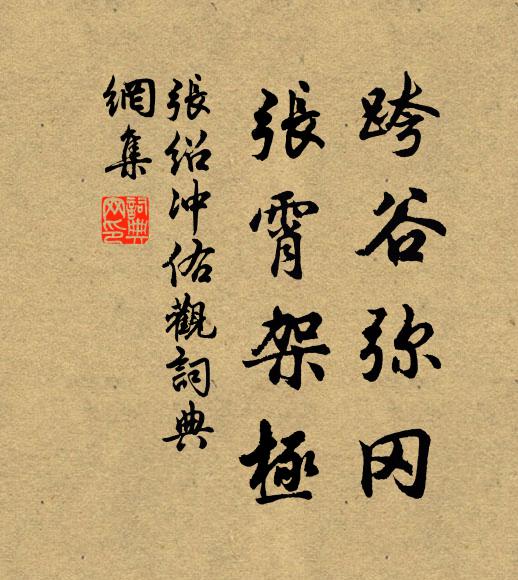 跨谷弥冈
張霄架極
張紹冲佑觀詞典
網集
詞典
网印